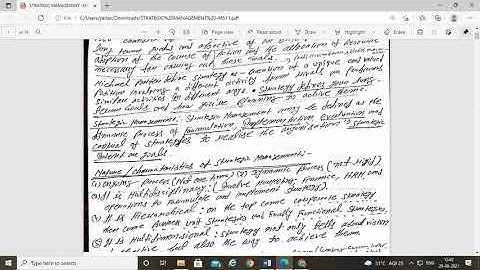 STRATEGIC MANAGEMENT
C:/Users/jadav/Downloads/STRATEGIC%20MANAGEMENT%20-MS11.pdf
long term goals and objective of an
adoption of the course of action and the allocation of resource
necessary for carrying out these goals.
Michael Porter define strategy as creation of a unique and valued
Position involving a different activity from rivals or performs
similar activities in different ways. Strategy defines your long-
term goals and how you're planning to achieve them.
Strategic Management: Strategic Management may be defined as the
dynamic process of formulation, implementation, evaluation and
control of strategies to realise the organisation's strategic
intent or goals.
Nature/characteristics of Strategic Management:-
(1) Ongoing Process (Not one time) (2) Dynamic Process (not rigid)
(3) It is Multidisciplinary: (Involve Marketing, Finance, HRM and
operations to formulate and implement strategy).
(4) It is Hierarchical: on the top come corporate strategy
then come Business unit Strategies and finally Functional Strategies.
(5) It is Multidimensional: Strategy not only tells about vision
objective but also the way to achieve them.
Type here to search
31°C AQI 25
ENG
12:47
29-06-2021